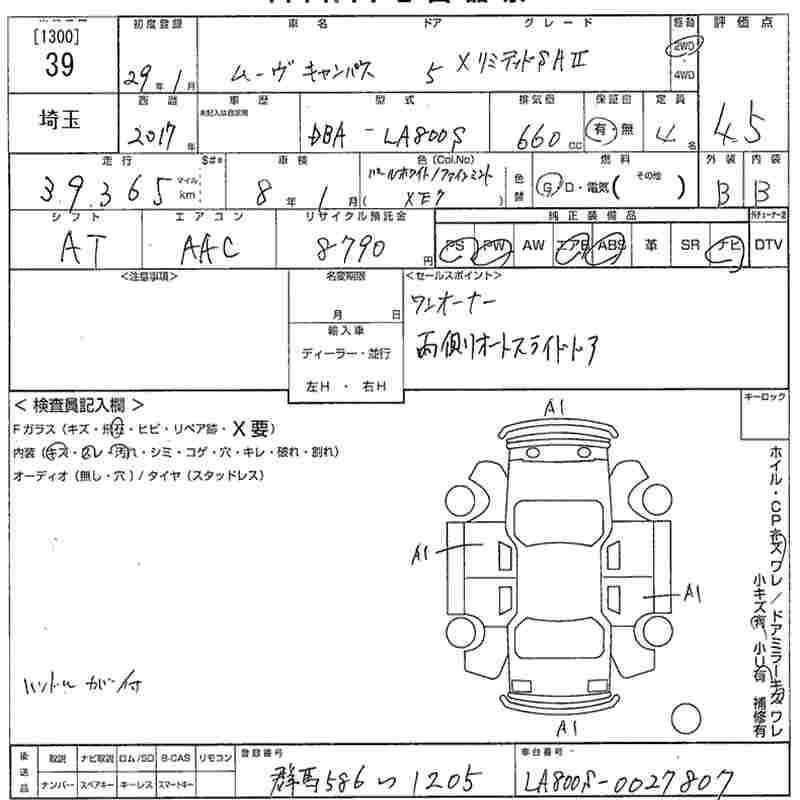 [1300]
39
初度登録
29年 1月
車名
ムーヴ キャンバス
ドア
5
グレード
XリミテッドSAⅡ
駆動
2WD
4WD
評価点
4.5
埼玉
西暦
2017年
車歴
未記入は自家用
型式
DBA - LA800S
排気量
660cc
保証書
有・無
定員
4名
走行
39365
マイル
km
S#*
車検
8年 1月
色(Col.No)
パールホワイト/ファインミント
( XE7 )
色替
燃料
G・D・電気( その他 )
外装
B
内装
B
シフト
AT
エアコン
AAC
リサイクル預託金
8790円
純正装備品
PS PW AW エアB ABS 革 SR ナビ
DTV
<注意事項>
名変期限
月 日
輸入車
ディーラー・並行
左H ・ 右H
<セールスポイント>
ワンオーナー
両側オートスライドドア
< 検査員記入欄 >
Fガラス(キズ・飛石・ヒビ・リペア跡・X要)
内装(キズ・スレ・汚れ・シミ・コゲ・穴・キレ・破れ・割れ)
オーディオ(無し・穴)/タイヤ(スタッドレス)
キーロック
A1
A1
A1
A1
ホイル・CPキズ ワレ/ドアミラーキズ ワレ
小キズ有 小U有 補修有
ハンドルカバー付
後送品
取説 ナビ取説 ロム/SD B-CAS リモコン
ナンバー スペアキー キーレス スマートキー
登録番号
群馬586 い 1205
車台番号
LA800S-0027807